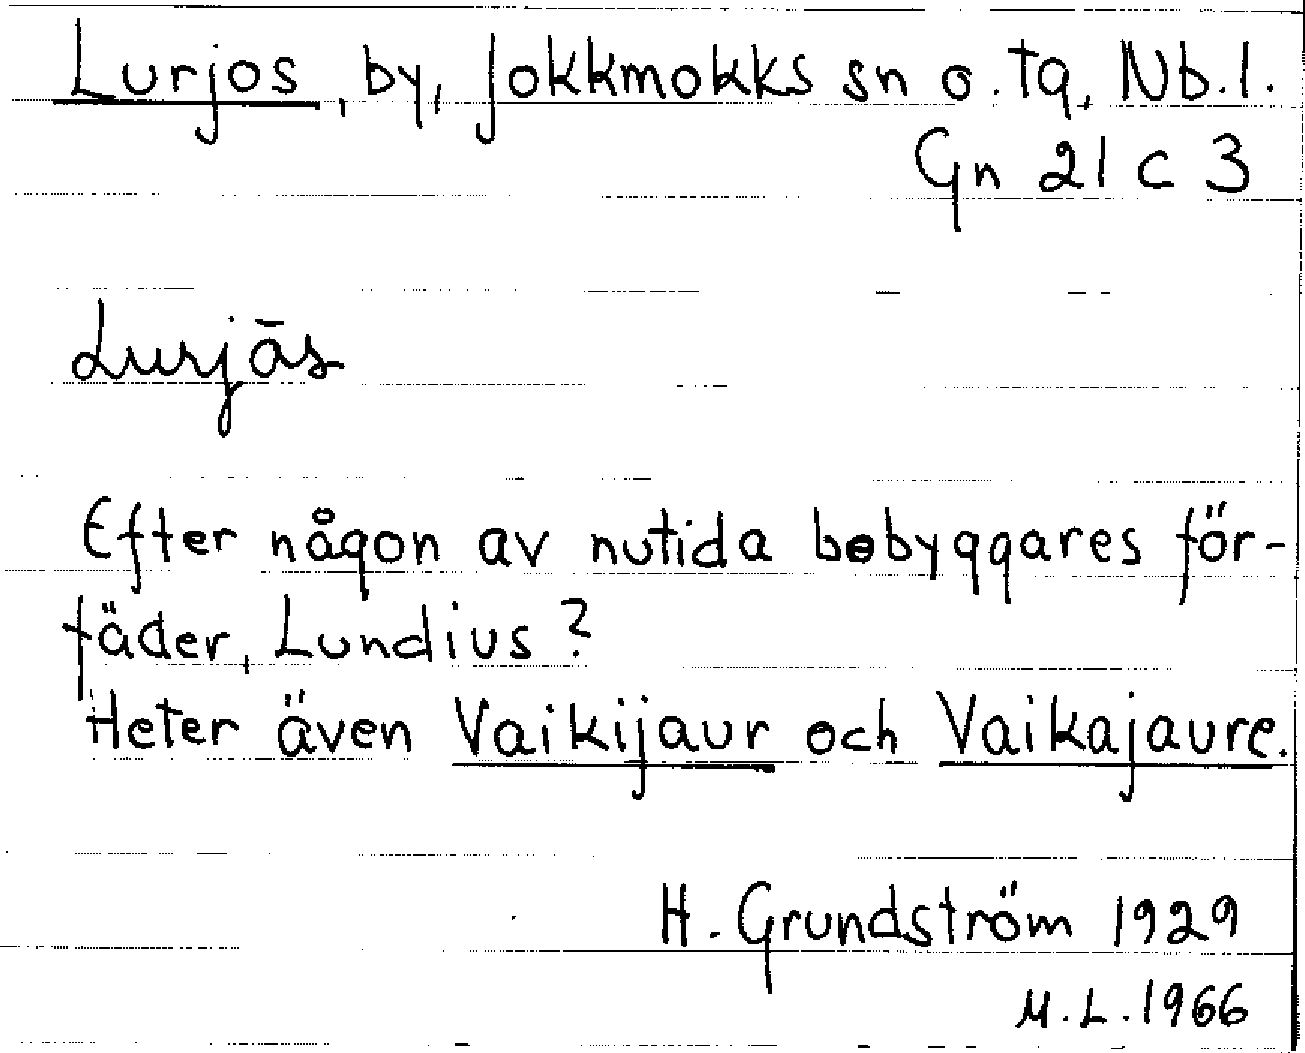 Lurjos, by, Jokkmokks sn o. tg, Nb. l.
Gn 21 c 3
Lurjās
Efter någon av nutida bebyggares för-
fäder, Lundius?
Heter även Vaikijaur och Vaikajaure.
H. Grundström 1929
M.L. 1966